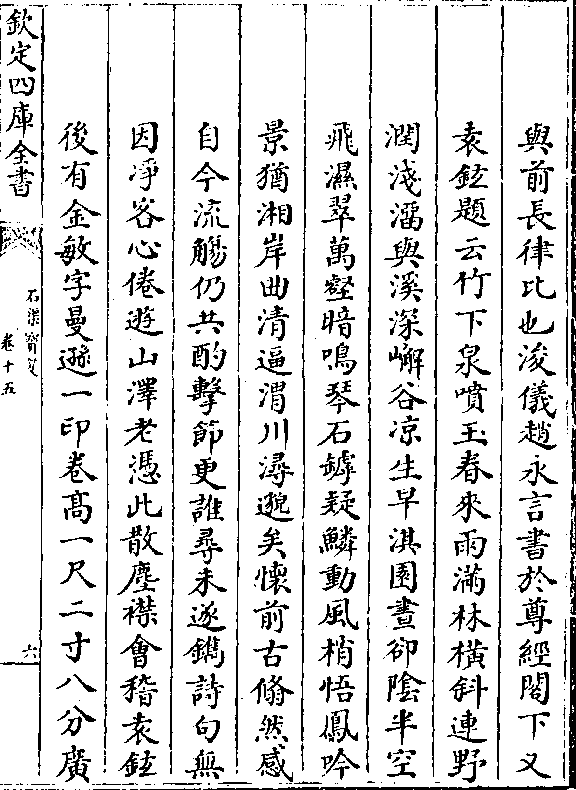 與前長律比也浚儀趙永言書於尊經閣下又
袁鉉題云竹下泉噴玉春來雨滿林橫斜連野
潤淺溜與溪深嶰谷凉生早淇園晝卻陰半空
飛濕翠萬壑暗鳴琴石罅疑鱗動風梢悟鳳吟
景猶湘岸曲清逼渭川潯邈矣懷前古翛然感
自今流觴仍共酌擊節更誰尋未遂鐫詩句無
因凈客心倦遊山澤老憑此散塵襟會稽袁鉉
後有金敏字曼遜一印卷髙一尺二寸八分廣
欽定四庫全書
石渠寳笈
卷十五
六